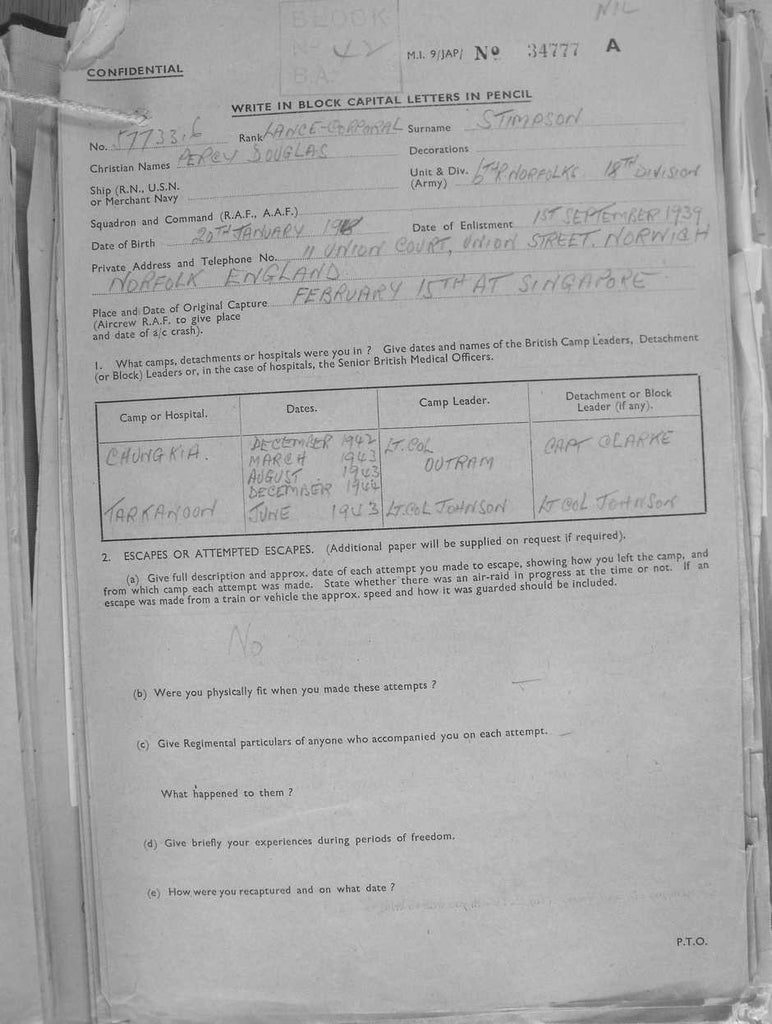 NIL
BLOCK
M.I. 9/JAP/ No 34777 A
CONFIDENTIAL
B.A.
WRITE IN BLOCK CAPITAL LETTERS IN PENCIL
No. 57733.6 Rank LANCE-CORPORAL Surname STIMPSON
Christian Names PERCY DOUGLAS Decorations
Ship (R.N., U.S.N. or Merchant Navy
Unit & Div. (Army) 6TH R NORFOLKS 18TH DIVISION
Squadron and Command (R.A.F., A.A.F.)
Date of Birth 20TH JANUARY Date of Enlistment 1ST SEPTEMBER 1939
Private Address and Telephone No. 11 UNION COURT, UNION STREET. NORWICH
NORFOLK ENGLAND
Place and Date of Original Capture FEBRUARY 15TH AT SINGAPORE
(Aircrew R.A.F. to give place
and date of a/c crash).
1. What camps, detachments or hospitals were you in ? Give dates and names of the British Camp Leaders, Detachment
(or Block) Leaders or, in the case of hospitals, the Senior British Medical Officers.
Camp or Hospital. Dates. Camp Leader. Detachment or Block Leader (if any).
CHUNGKIA. DECEMBER 1942 LT. COL CAPT CLARKE
MARCH 1943 OUTRAM
AUGUST 1943
DECEMBER 1944
TARKANOON JUNE 1943 LT. COL JOHNSON LT COL JOHNSON
2. ESCAPES OR ATTEMPTED ESCAPES. (Additional paper will be supplied on request if required).
(a) Give full description and approx. date of each attempt you made to escape, showing how you left the camp, and
from which camp each attempt was made. State whether there was an air-raid in progress at the time or not. If an
escape was made from a train or vehicle the approx. speed and how it was guarded should be included.
No
(b) Were you physically fit when you made these attempts ? —
(c) Give Regimental particulars of anyone who accompanied you on each attempt. —
What happened to them ?
(d) Give briefly your experiences during periods of freedom.
(e) How were you recaptured and on what date ?
P.T.O.